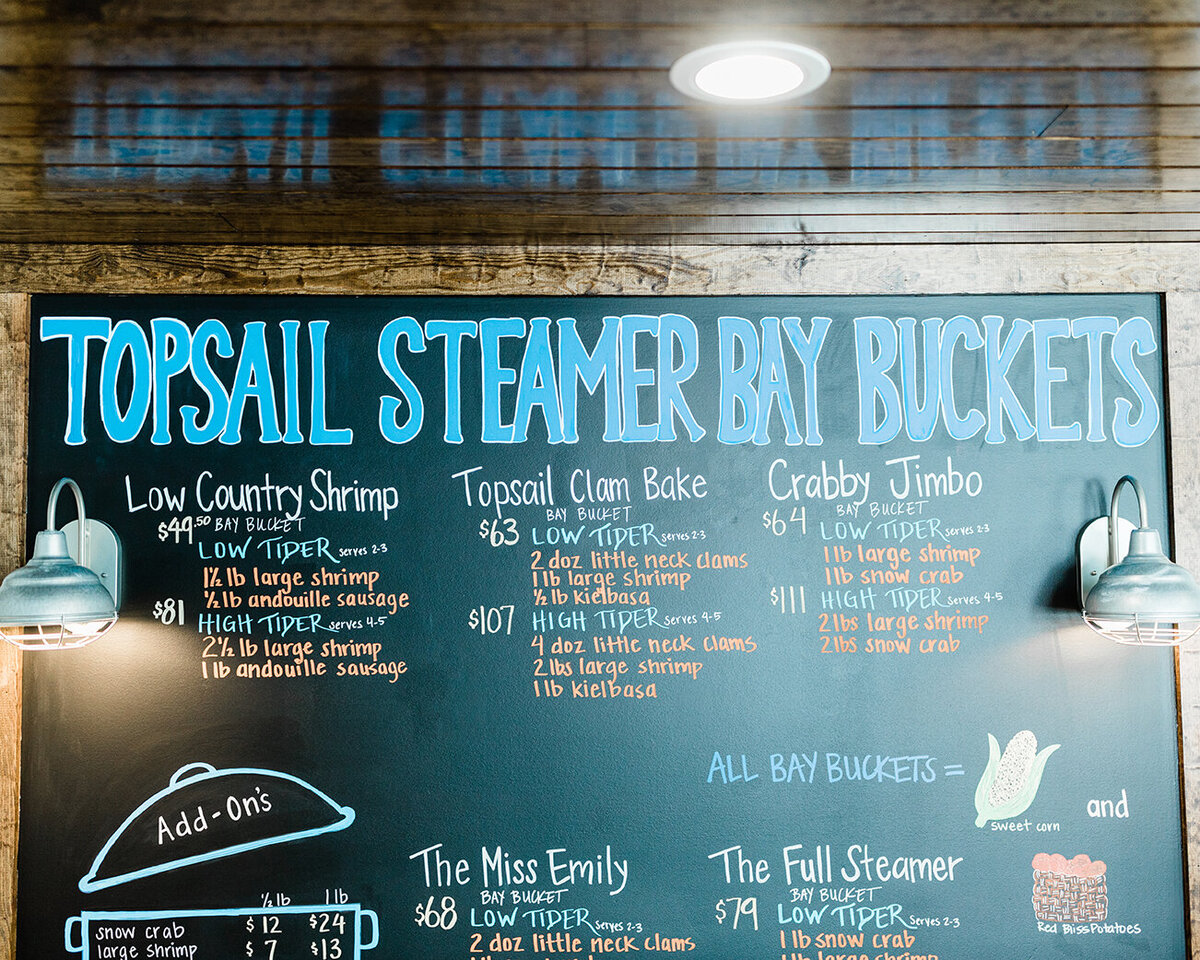 TOPSAIL STEAMER BAY BUCKETS
Low Country Shrimp
$49.50 BAY BUCKET
LOW TIDER serves 2-3
1½ lb large shrimp
½ lb andouille sausage
$81 HIGH TIDER serves 4-5
2½ lb large shrimp
1 lb andouille sausage
Topsail Clam Bake
BAY BUCKET
$63 LOW TIDER serves 2-3
2 doz little neck clams
1 lb large shrimp
½ lb kielbasa
$107 HIGH TIDER serves 4-5
4 doz little neck clams
2lbs large shrimp
1 lb kielbasa
Crabby Jimbo
BAY BUCKET
$64 LOW TIDER serves 2-3
1 lb large shrimp
1 lb snow crab
$111 HIGH TIDER serves 4-5
2lbs large shrimp
2lbs snow crab
ALL BAY BUCKETS =
sweet corn
and
Red Bliss Potatoes
Add-On's
½ lb 1 lb
snow crab $12 $24
large shrimp $7 $13
The Miss Emily
BAY BUCKET
$68 LOW TIDER serves 2-3
2 doz little neck clams
The Full Steamer
BAY BUCKET
$79 LOW TIDER serves 2-3
1 lb snow crab
1 lb large shrimp